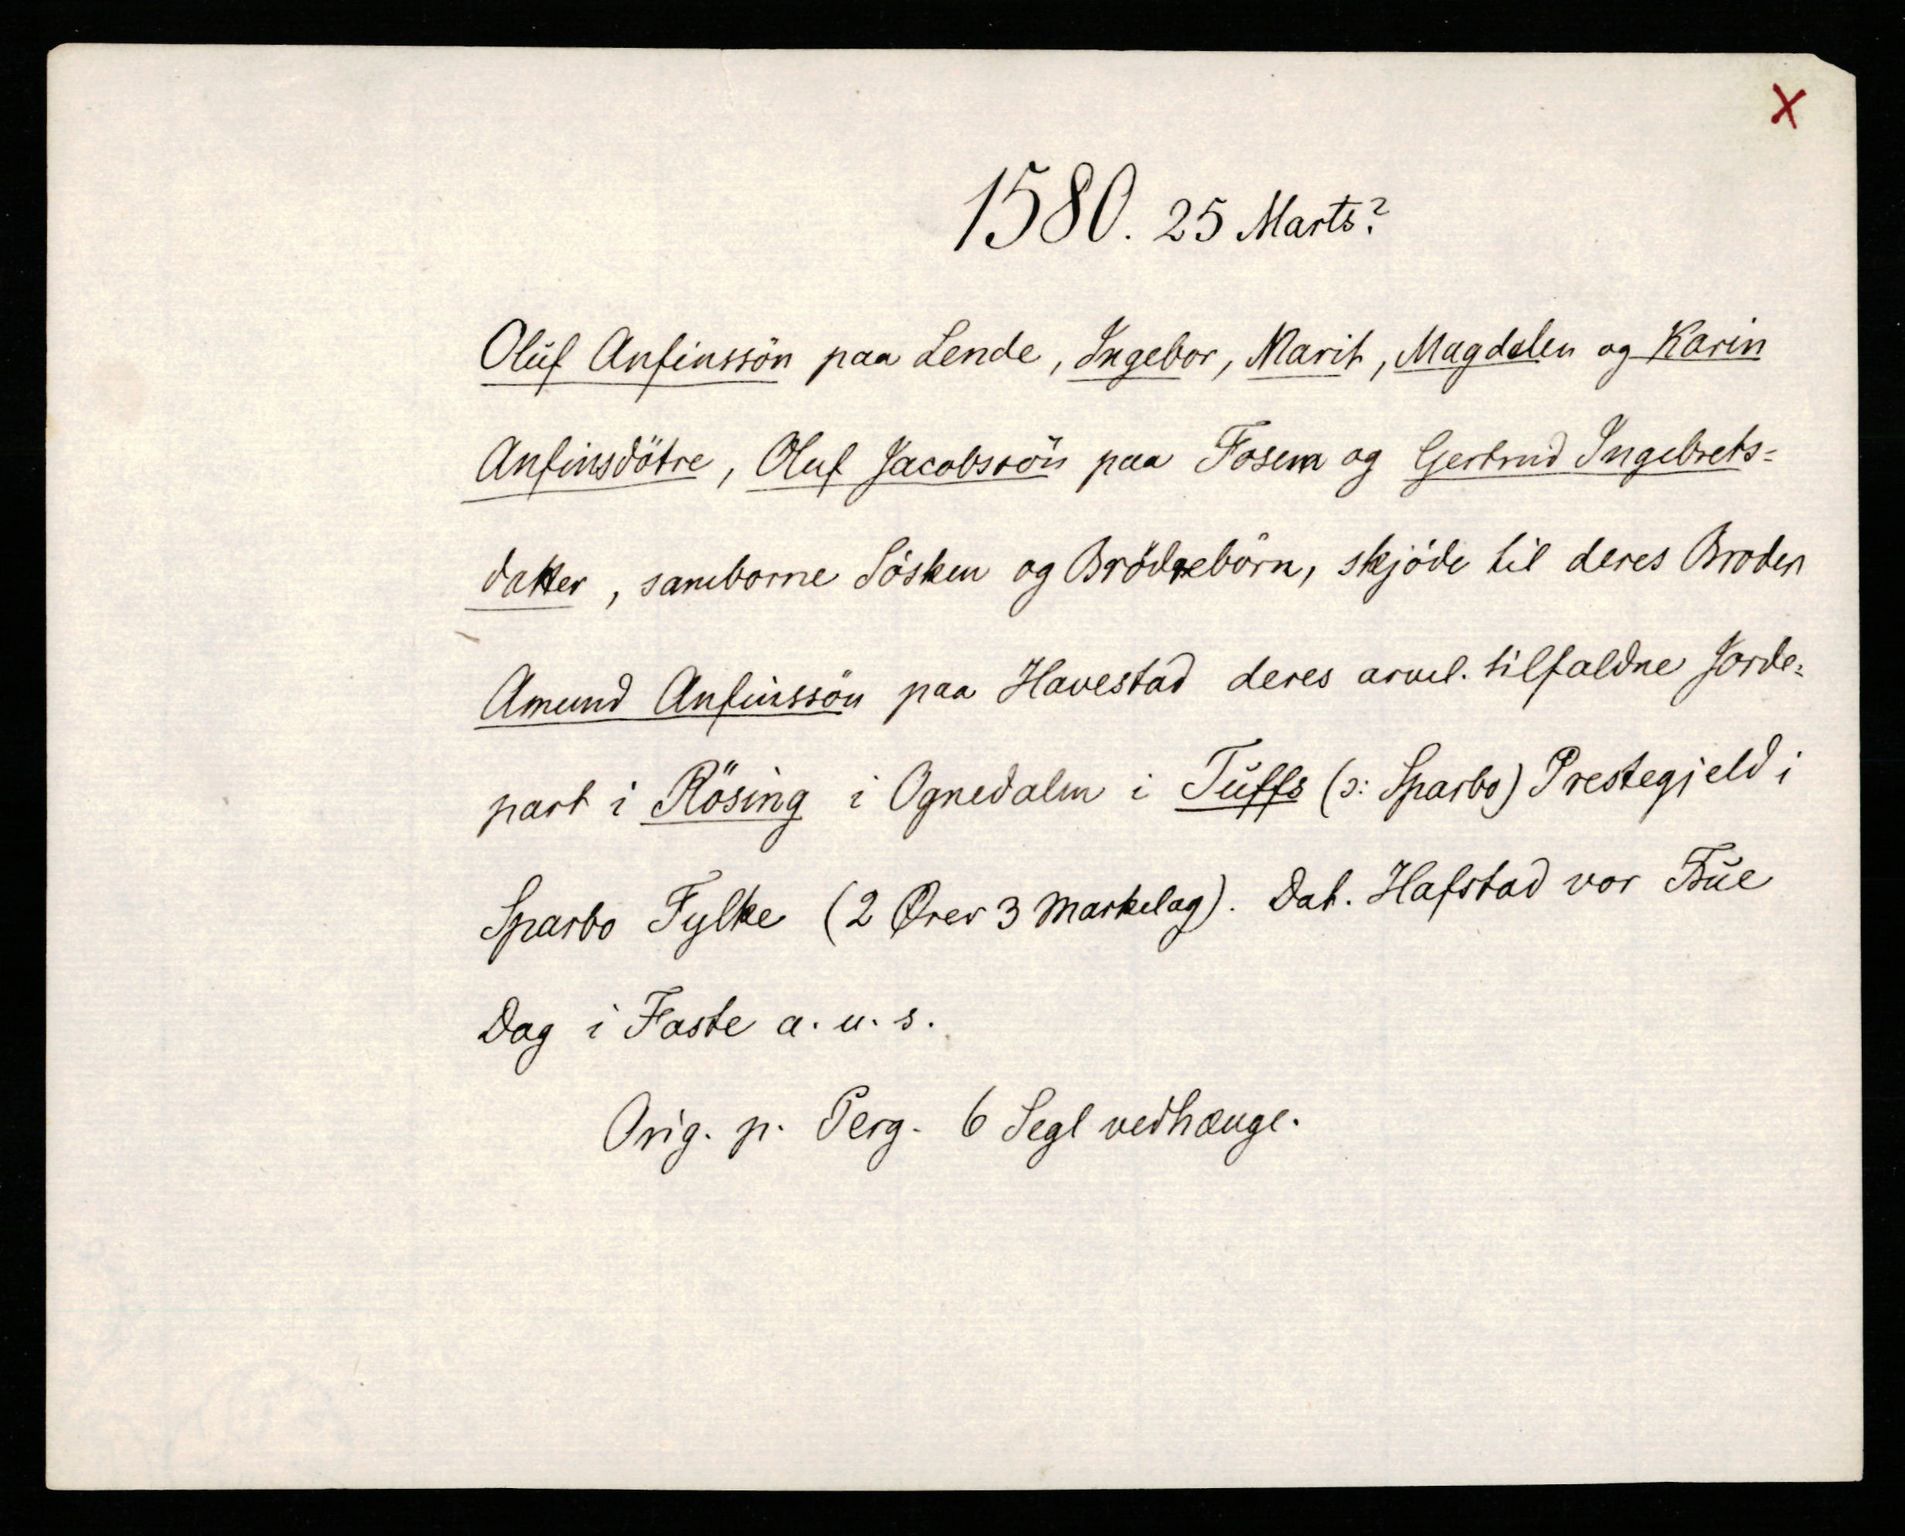 X
1580. 25 Marts?
Oluf Anfinssön paa Lende, Ingebor, Marit, Magdalen og Karin
Anfinsdötre, Oluf Jacobssön paa Fosem og Gertrud Ingebrets=
datter, samborne Sösken og Brödrebörn, skjöde til deres Broder
Amund Anfinssön paa Havestad deres arvel. tilfaldne Jorde=
part i Rösing i Ognedalen i Tuffs (ɔ: Sparbo) Prestegjeld i
Sparbo Fylke (2 Ører 3 Markelag). Dat. Hafstad vor Frue
Dag i Faste a. u. s.
Orig. p. Perg. 6 Segl vedhænge.